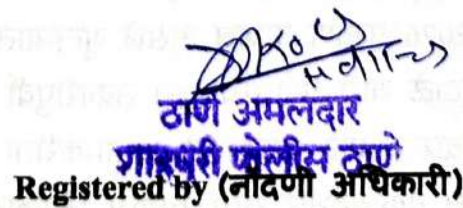 ठाणे अमलदार
शाहूपुरी पोलीस ठाणे
Registered by (नोंदणी अधिकारी)